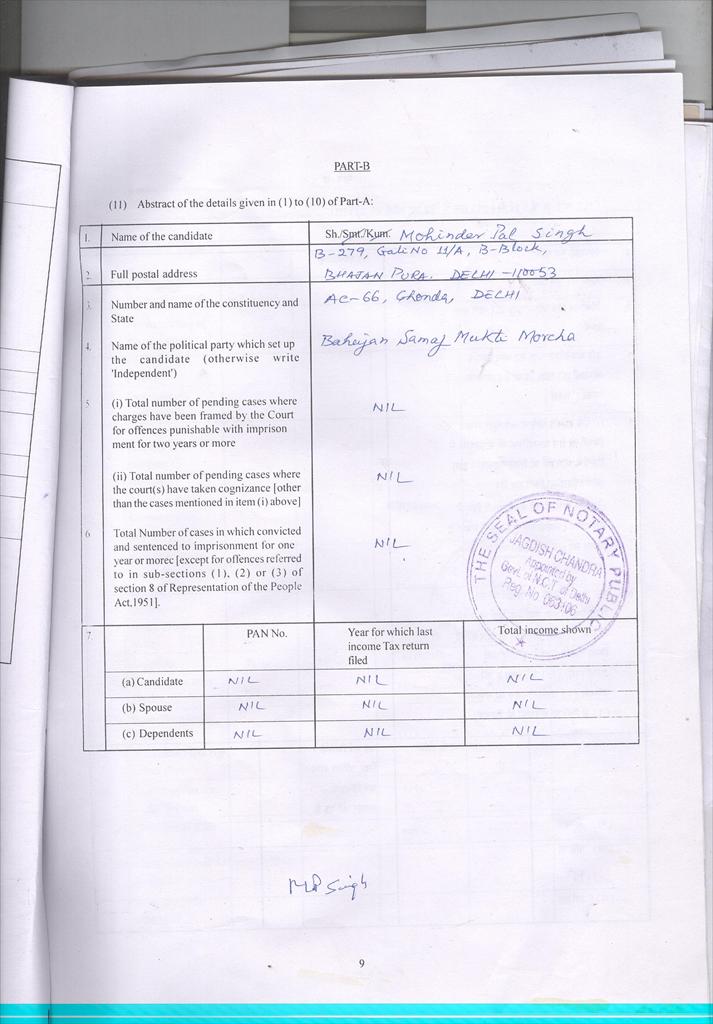 PART-B
(11) Abstract of the details given in (1) to (10) of Part-A:
1. Name of the candidate Sh./Smt./Kum. Mohinder Pal Singh
B-279, Gali No 11/A, B-Block,
2. Full postal address BHAJAN PURA. DELHI-110053
3. Number and name of the constituency and AC-66, Ghonda, DELHI
State
4. Name of the political party which set up Bahujan Samaj Mukti Morcha
the candidate (otherwise write
'Independent')
5 (i) Total number of pending cases where NIL
charges have been framed by the Court
for offences punishable with imprison
ment for two years or more
(ii) Total number of pending cases where NIL
the court(s) have taken cognizance [other
than the cases mentioned in item (i) above]
6 Total Number of cases in which convicted NIL
and sentenced to imprisonment for one
year or morec [except for offences referred
to in sub-sections (1), (2) or (3) of
section 8 of Representation of the People
Act,1951].
THE SEAL OF NOTARY PUBLIC
JAGDISH CHANDRA
Appointed by
Govt. of N.C.T. of Delhi
Reg. No
7. PAN No. Year for which last Total income shown
income Tax return
filed
(a) Candidate NIL NIL NIL
(b) Spouse NIL NIL NIL
(c) Dependents NIL NIL NIL
MP Singh
9